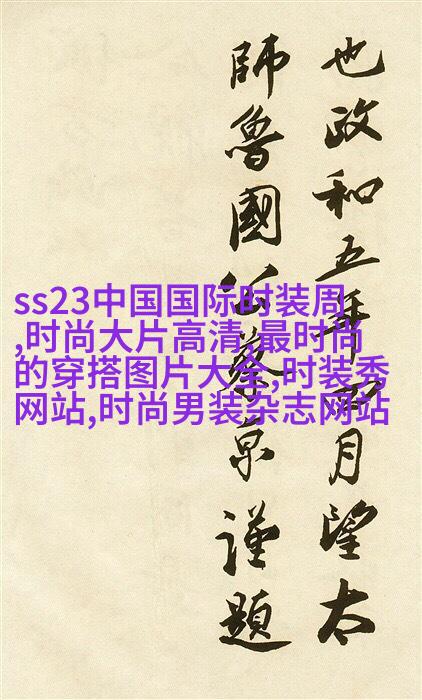 也政和五年四月望太
師魯國公蔡京謹題
ss23中国国际时装周
,时尚大片高清,最时尚
的穿搭图片大全,时装秀
网站,时尚男装杂志网站